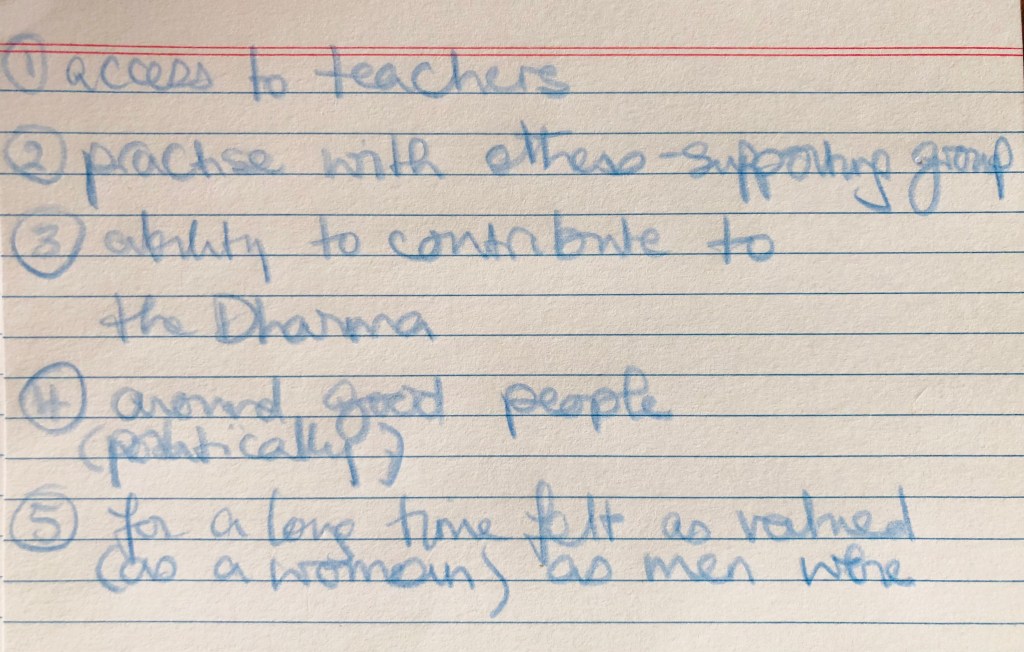 ① access to teachers
② practise with others - supporting group
③ ability to contribute to
the Dharma
④ around good people
(politically)
⑤ for a long time felt as valued
(as a woman) as men were